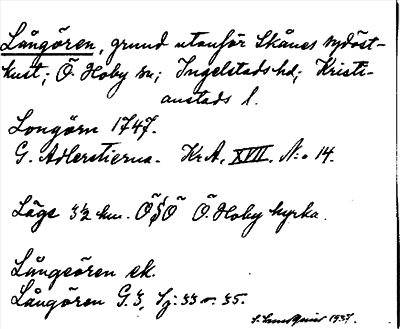 Långören, grund utanför Skånes sydöst-
kust; Ö. Hoby sn; Ingelstads hd; Kristi-
anstads l.
Longörn 1747.
G. Adlerstierna. Kr.A. XVII. N:o 14.
Läge 3½ km. ÖSÖ Ö. Hoby kyrka.
Långeören ek.
Långören G.3, Sj: 33 o. 35.
S. Sundquist 1937.